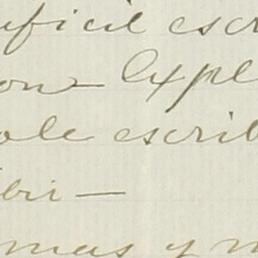 uficil escr
on — Expl
ole escrib
bir —
mas y m